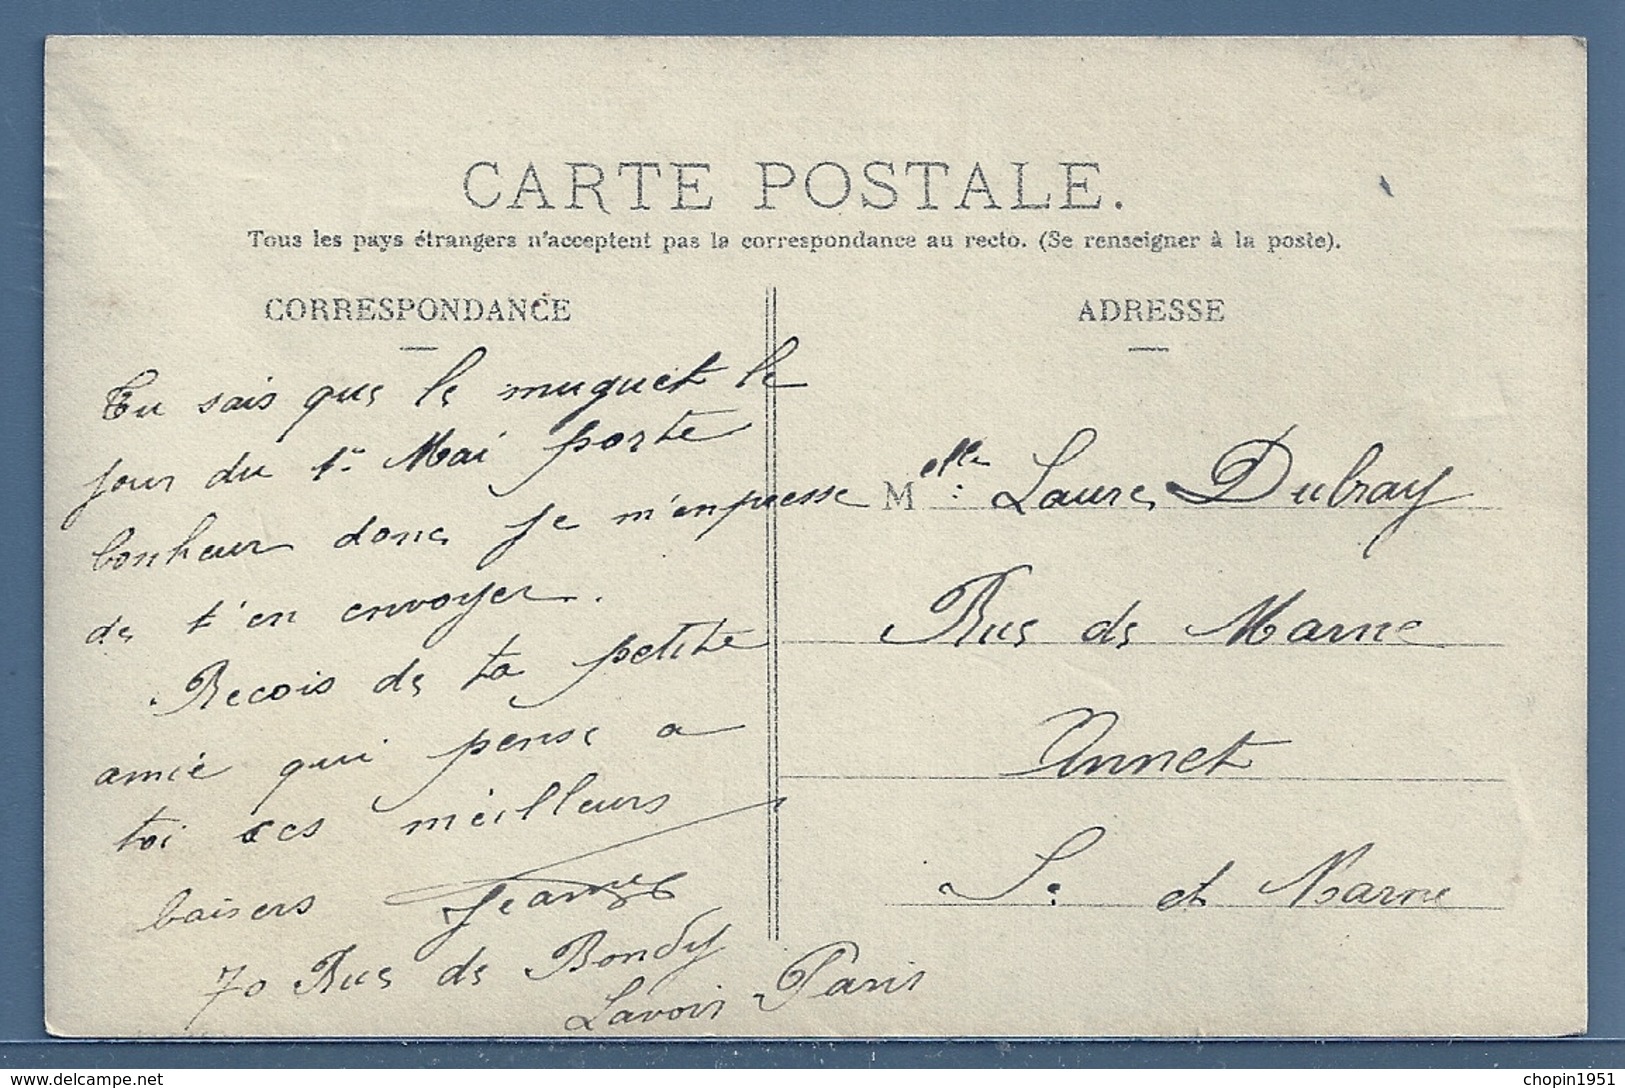 CARTE POSTALE.
Tous les pays étrangers n'acceptent pas la correspondance au recto. (Se renseigner à la poste).
CORRESPONDANCE
Tu sais que le muguet le
jour du 1er Mai porte
bonheur donc je m'empresse
de t'en envoyer.
Recois de ta petite
amie qui pense a
toi ses meilleurs
baisers Jeanne
70 Rue de Bondy
Lavoir Paris
ADRESSE
Melle Laure Dubray
Rue de Marne
Annet
S. et Marne
chopin1951